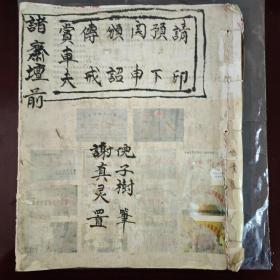 請印
預下
闵申
頒詔
傳戒
賞車夫
諸齋壇前
倪子樹 筆
謝真灵 置